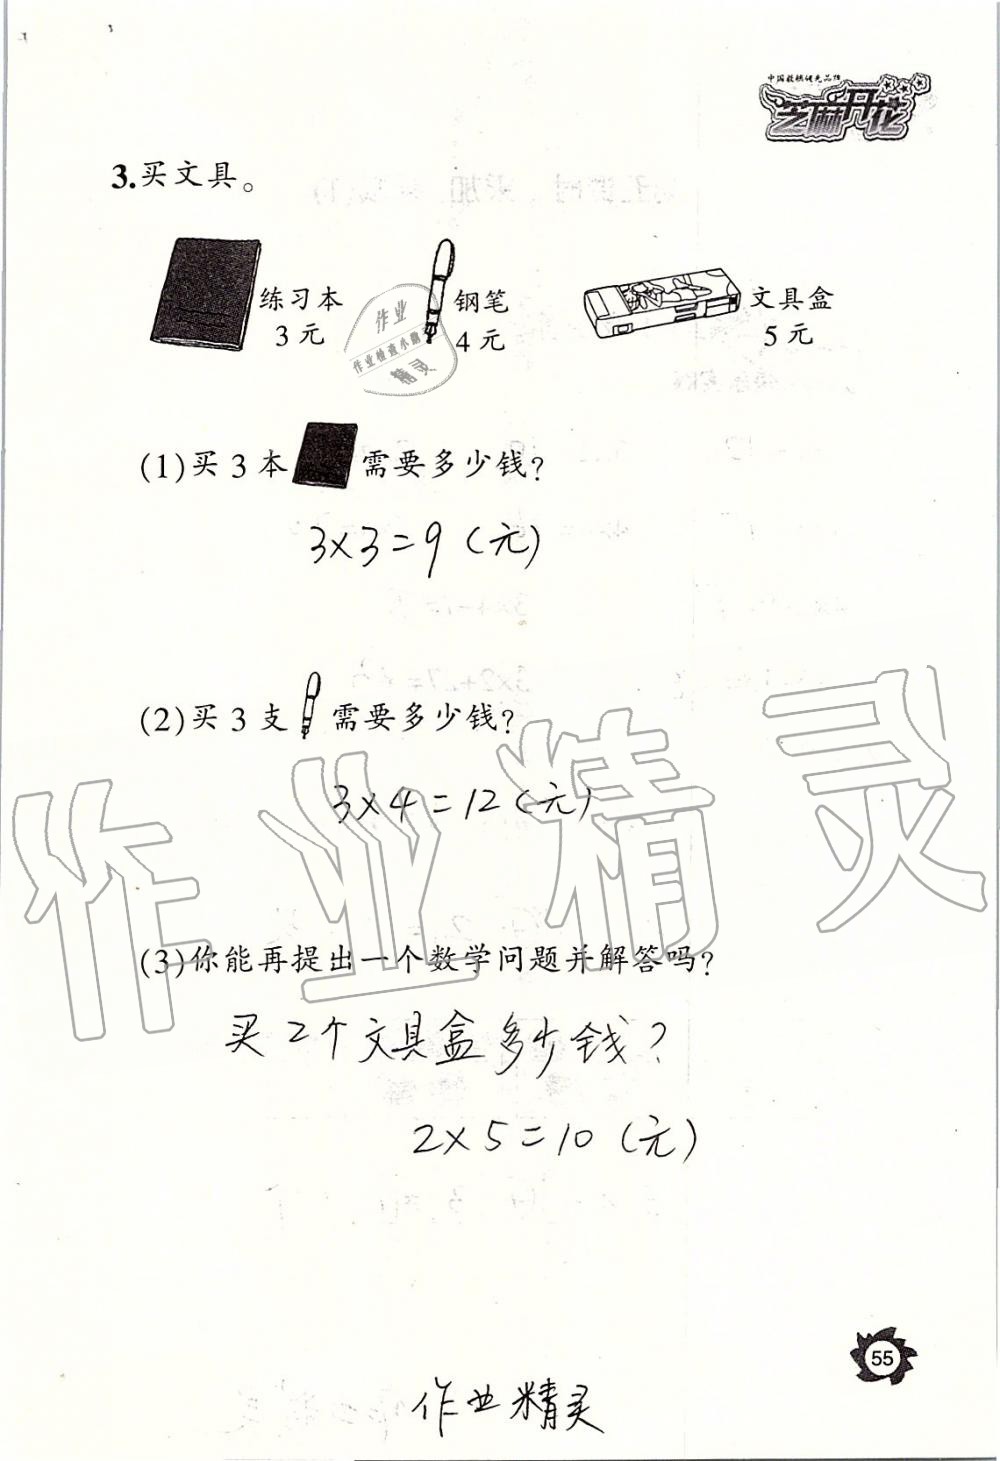 中国教辅优先品牌
芝麻开花
3.买文具。
练习本
3元
钢笔
4元
文具盒
5元
作业
作业检查小助
精灵
(1)买3本 需要多少钱?
3×3=9(元)
(2)买3支 需要多少钱?
3×4=12(元)
作业精灵
(3)你能再提出一个数学问题并解答吗?
买2个文具盒多少钱?
2×5=10(元)
55
作业精灵